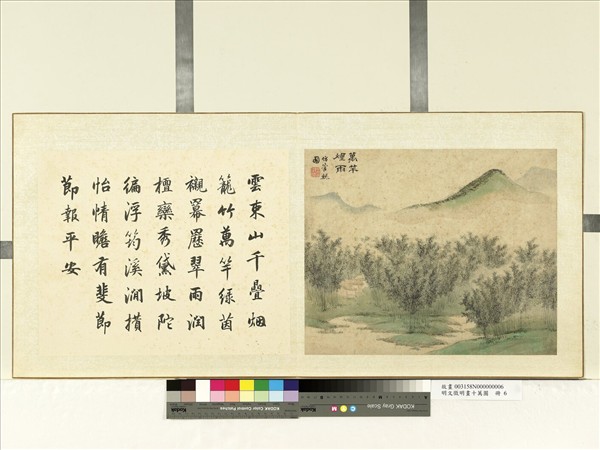 萬竿
煙雨
雲東山千疊烟
籠竹萬竿綠茵
翠雨潤
檀欒秀黛坡陀
浮筠溪澗攢
怡情瞻有斐節
節報平安
KODAK Color Control Patches
KODAK Gray Scale
C M Y
故畫 003158N000000006
明文徵明畫十萬圖 冊 6